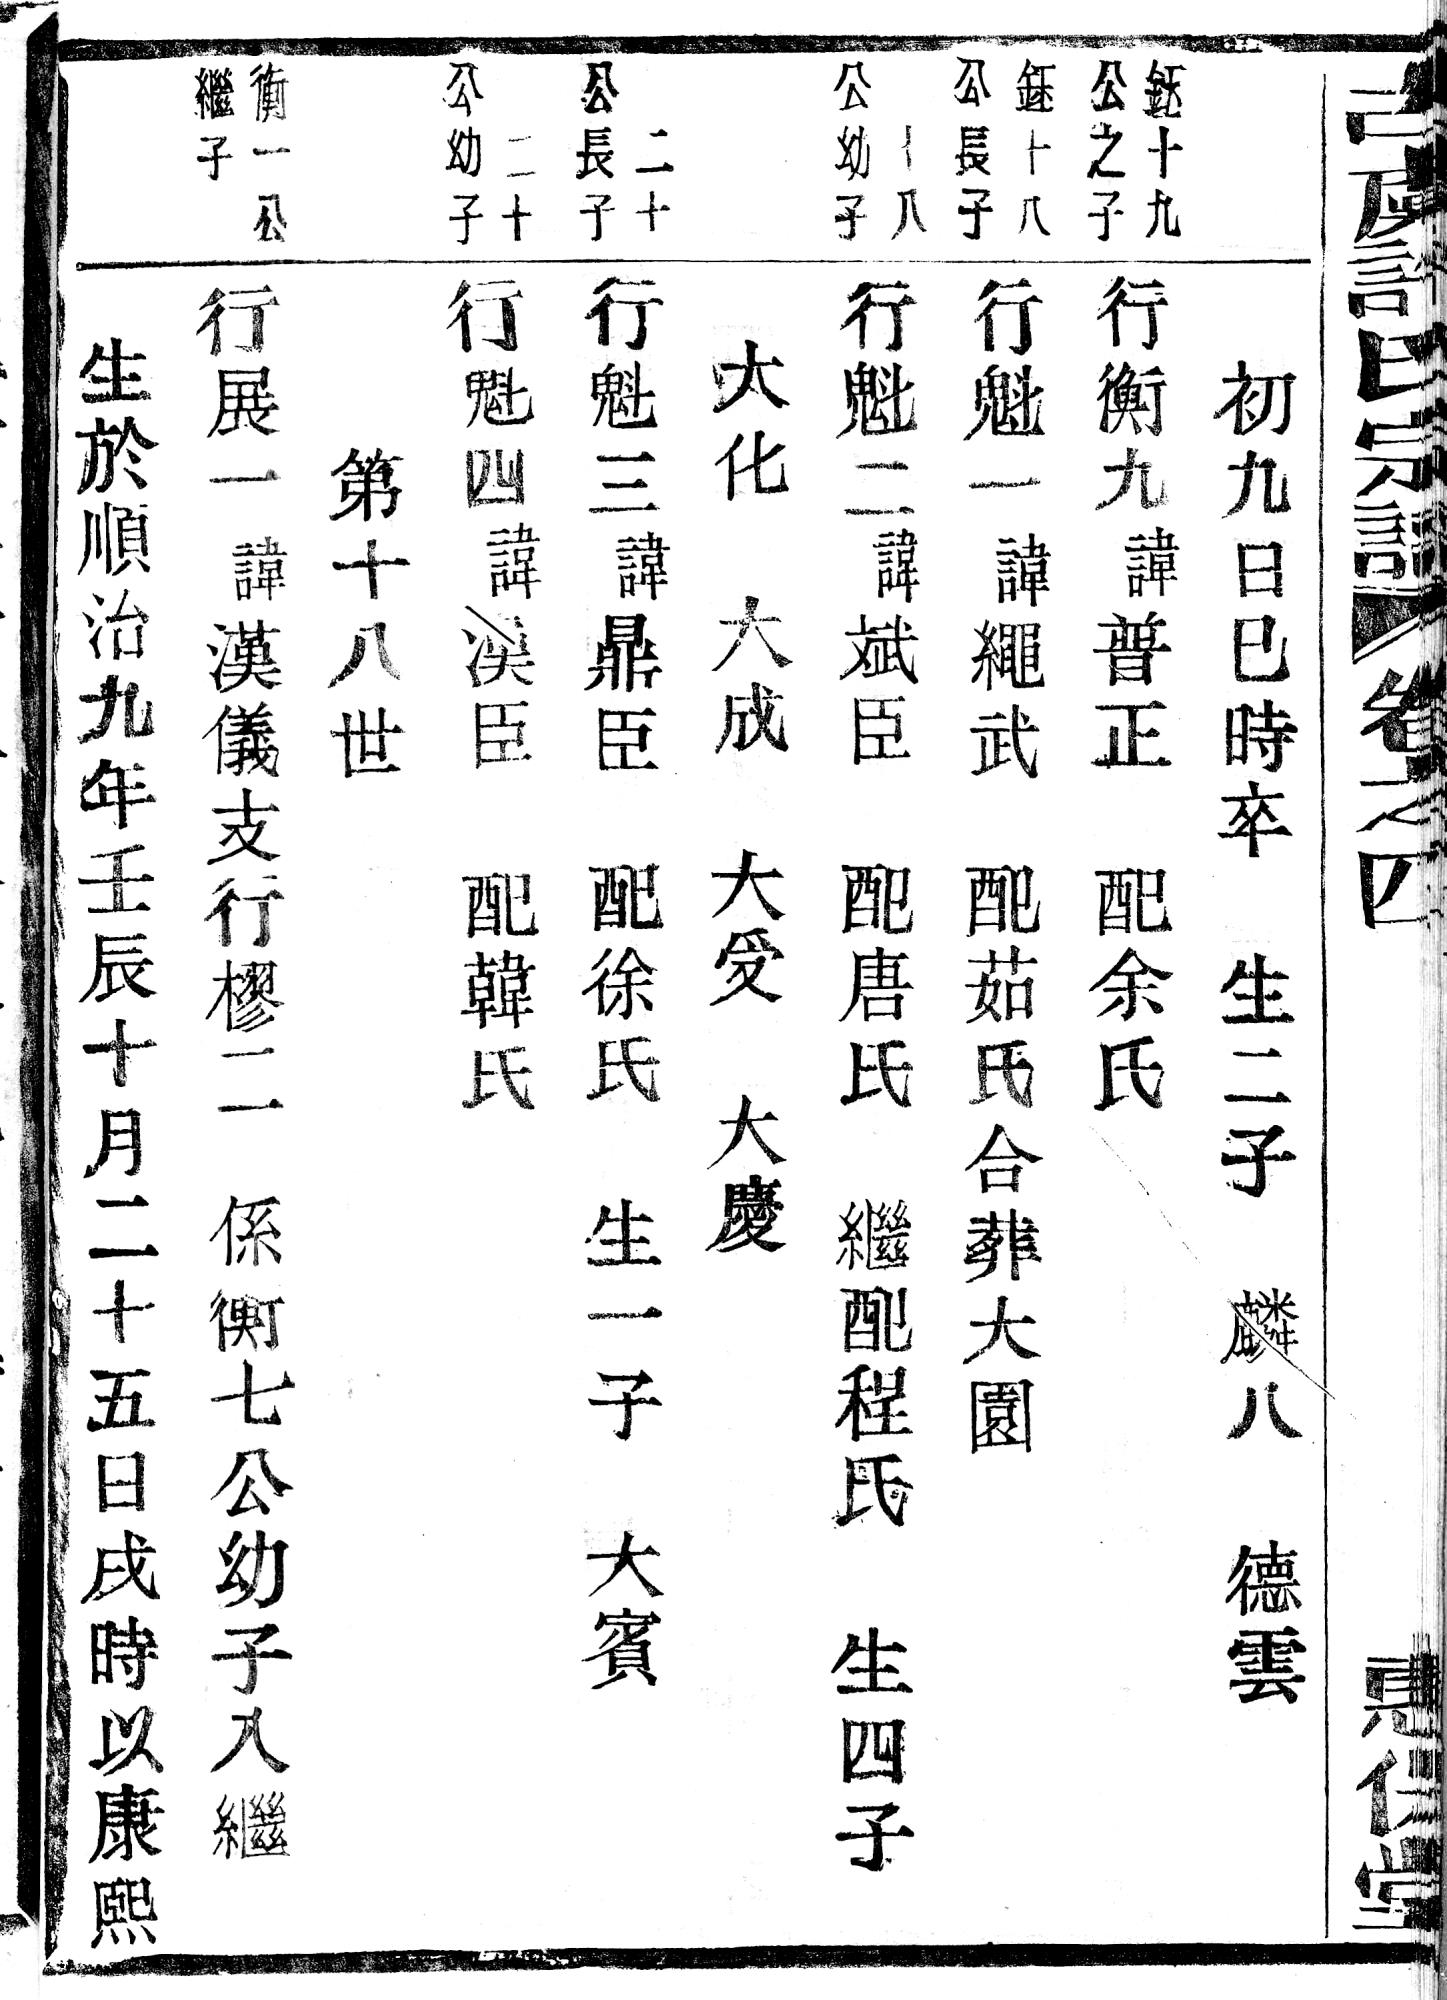 宗譜 卷之四
初九日巳時卒 生二子 麟八 德雲
鈺十九
公之子
行衡九 諱普正 配余氏
鈺十八
公長子
行魁一 諱繩武 配茹氏合葬大園
十八
公幼子
行魁二 諱斌臣 配唐氏 繼配程氏 生四子
大化 大成 大受 大慶
二十
公長子
行魁三 諱鼎臣 配徐氏 生一子 大賓
二十
公幼子
行魁四 諱漢臣 配韓氏
第十八世
衡一公
繼子
行展一 諱漢儀支行樛二 係衡七公幼子入繼
生於順治九年壬辰十月二十五日戌時以康熙